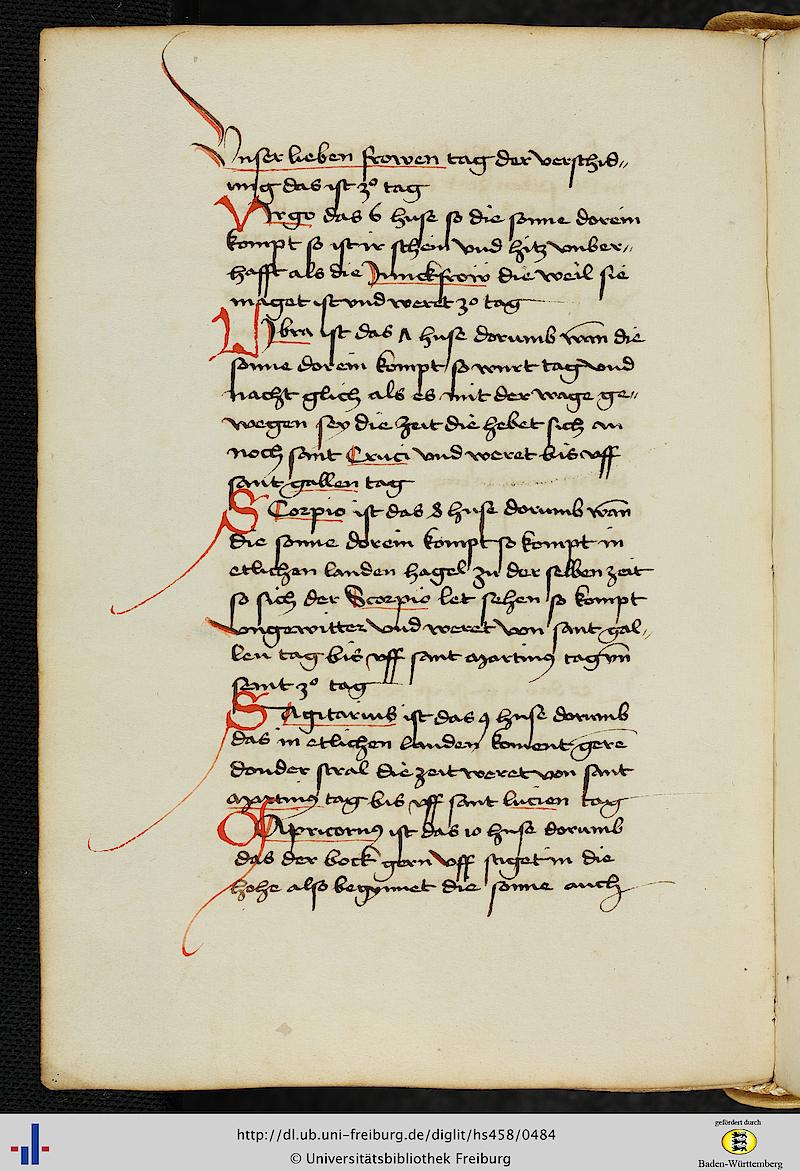 Vnser lieben frowen tag der verschid„
ung das ist 30 tag
Virgo das 6 huse so die sonne dorein
kompt so ist ir schein vnd hitz vnber„
hafft als die Junckfrow die weil sie
maget ist vnd weret 30 tag
Libra ist das 7 huse dorumb wan̄ die
sonne dorein kompt so wurt tag vnd
nacht glich als es mit der wage ge„
wegen sey die zeit die hebet sich an
noch sant Cruci vnd weret bis vff
sant gallen tag
SCorpio ist das 8 huse dorumb wan̄
die sonne dorein kompt so kompt in
etlichen landen hagel zu der selben zeit
so sich der Scorpio let sehen so kompt
vngewitter vnd weret von sant gal„
len tag bis vff sant martinꝰ tag vn̄
seint 30 tag
SAgitarius ist das 9 huse dorumb
das in etlichen landen koment gerē
donder stral die zeit weret von sant
martinꝰ tag bis vff sant lucien tag
CApricornꝰ ist das 10 huse dorumb
das der bock gern vff stiget in die
hohe also begynnet die sonne auch
http://dl.ub.uni-freiburg.de/diglit/hs458/0484
© Universitätsbibliothek Freiburg
gefördert durch
Baden-Württemberg